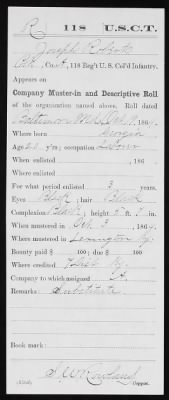 R 118 U.S.C.T.
Joseph Roberts
Pvt., Co. A, 118 Reg't U. S. Col'd Infantry.
Appears on
Company Muster-in and Descriptive Roll
of the organization named above. Roll dated
Baltimore Md. Oct. 19, 1864.
Where born Georgia
Age 20 y'rs; occupation
When enlisted , 186
Where enlisted
For what period enlisted 3 years.
Eyes Black; hair Black
Complexion Black; height 5 ft. in.
When mustered in Oct. 3, 1864.
Where mustered in Lexington Ky.
Bounty paid $ 100; due $ 100
Where credited
Company to which assigned A.
Remarks: Substitute
Book mark:
S. W. Rowland
Copyist.